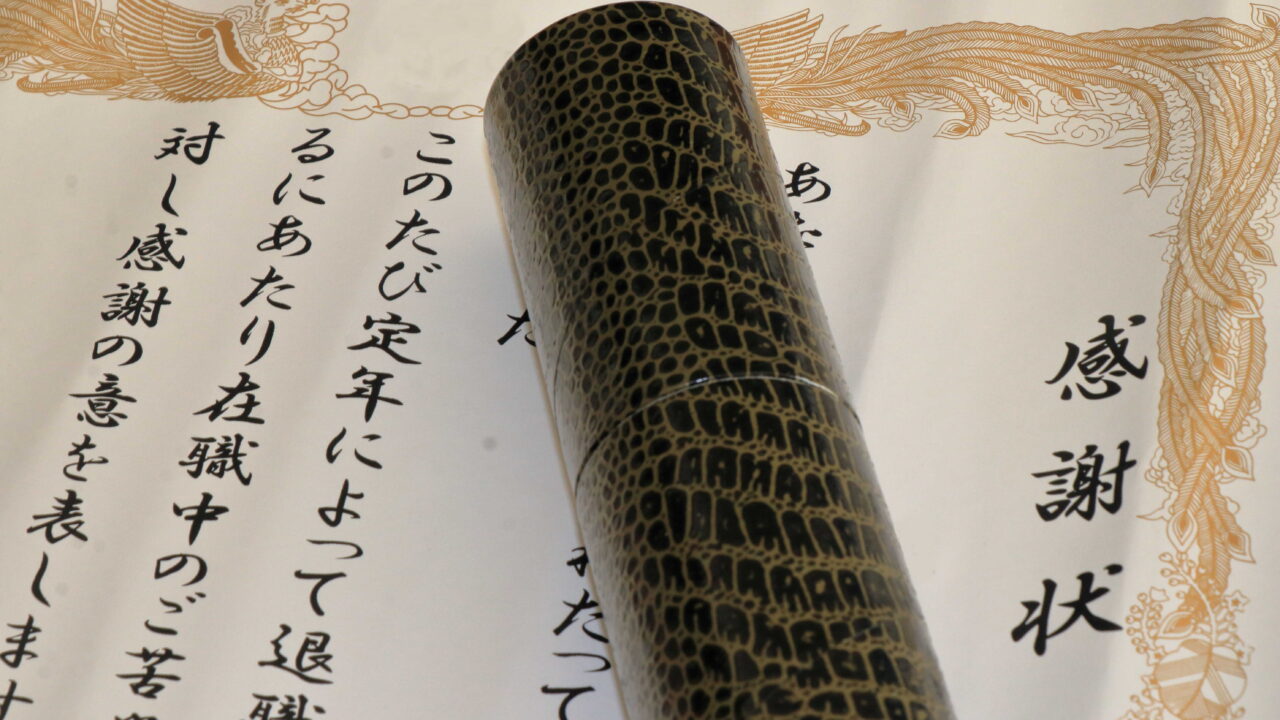 感謝状
あな
たって
このたび定年によって退職
るにあたり在職中のご苦
対し感謝の意を表します